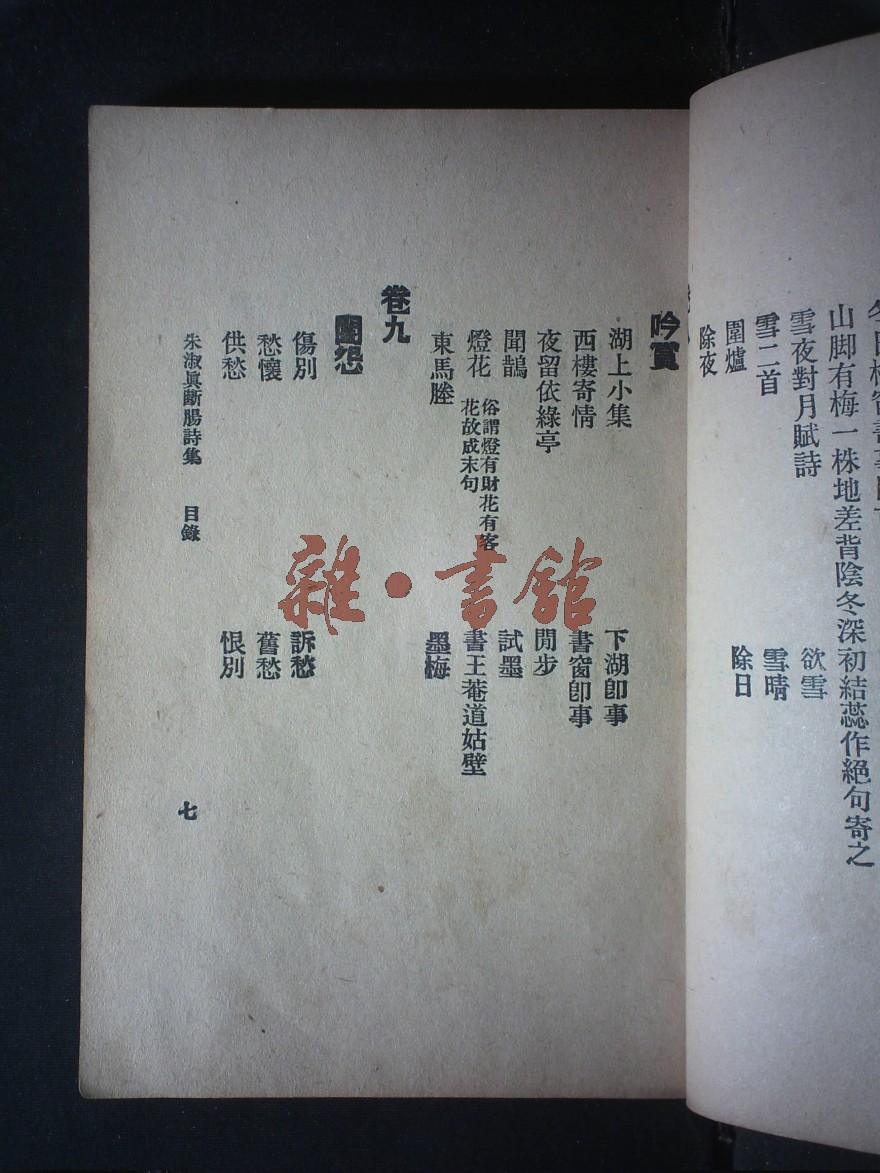 山脚有梅一株地差背陰冬深初結蕊作絕句寄之
雪夜對月賦詩 欲雪
雪二首 雪晴
圍爐 除日
除夜
吟賞
湖上小集 下湖卽事
西樓寄情 書窗卽事
夜留依綠亭 閒步
聞鵲 試墨
燈花 俗謂燈有財花有客
花故成末句 書王菴道姑壁
東馬塍 墨梅
卷九
閨怨
傷別 訴愁
愁懷 舊愁
供愁 恨別
朱淑眞斷腸詩集 目錄 七
雜·書館